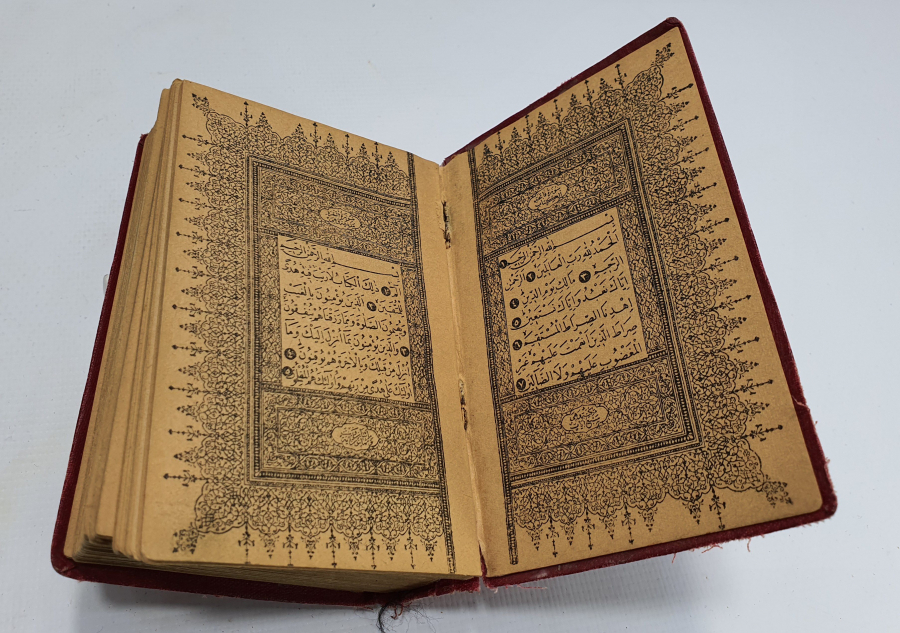 بسم الله الرحمن الرحيم ١
الحمد لله رب العالمين ٢ الرحمن
الرحيم ٣ مالك يوم الدين ٤
اياك نعبد واياك نستعين ٥
اهدنا الصراط المستقيم ٦
صراط الذين انعمت عليهم غير
المغضوب عليهم ولا الضالين ٧
بسم الله الرحمن الرحيم
ذلك الكتاب لا ريب فيه هدى
للمتقين ٢ الذين يؤمنون بالغيب
ويقيمون الصلوة ومما رزقناهم ينفقون
٣ والذين يؤمنون بما انزل اليك وما
انزل من قبلك وبالاخرة هم يوقنون ٤
اولئك على هدى من ربهم واولئك هم المفلحون ٥